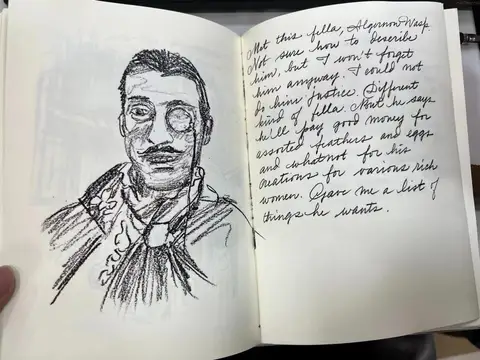 Met this fella, Algernon Wasp.
Not sure how to describe
him, but I won't forget
him anyway. I could not
do him justice. Different
kind of fella. But he says
he'll pay good money for
assorted feathers and eggs
and whatnot for his
creations for various rich
women. Gave me a list of
things he wants.